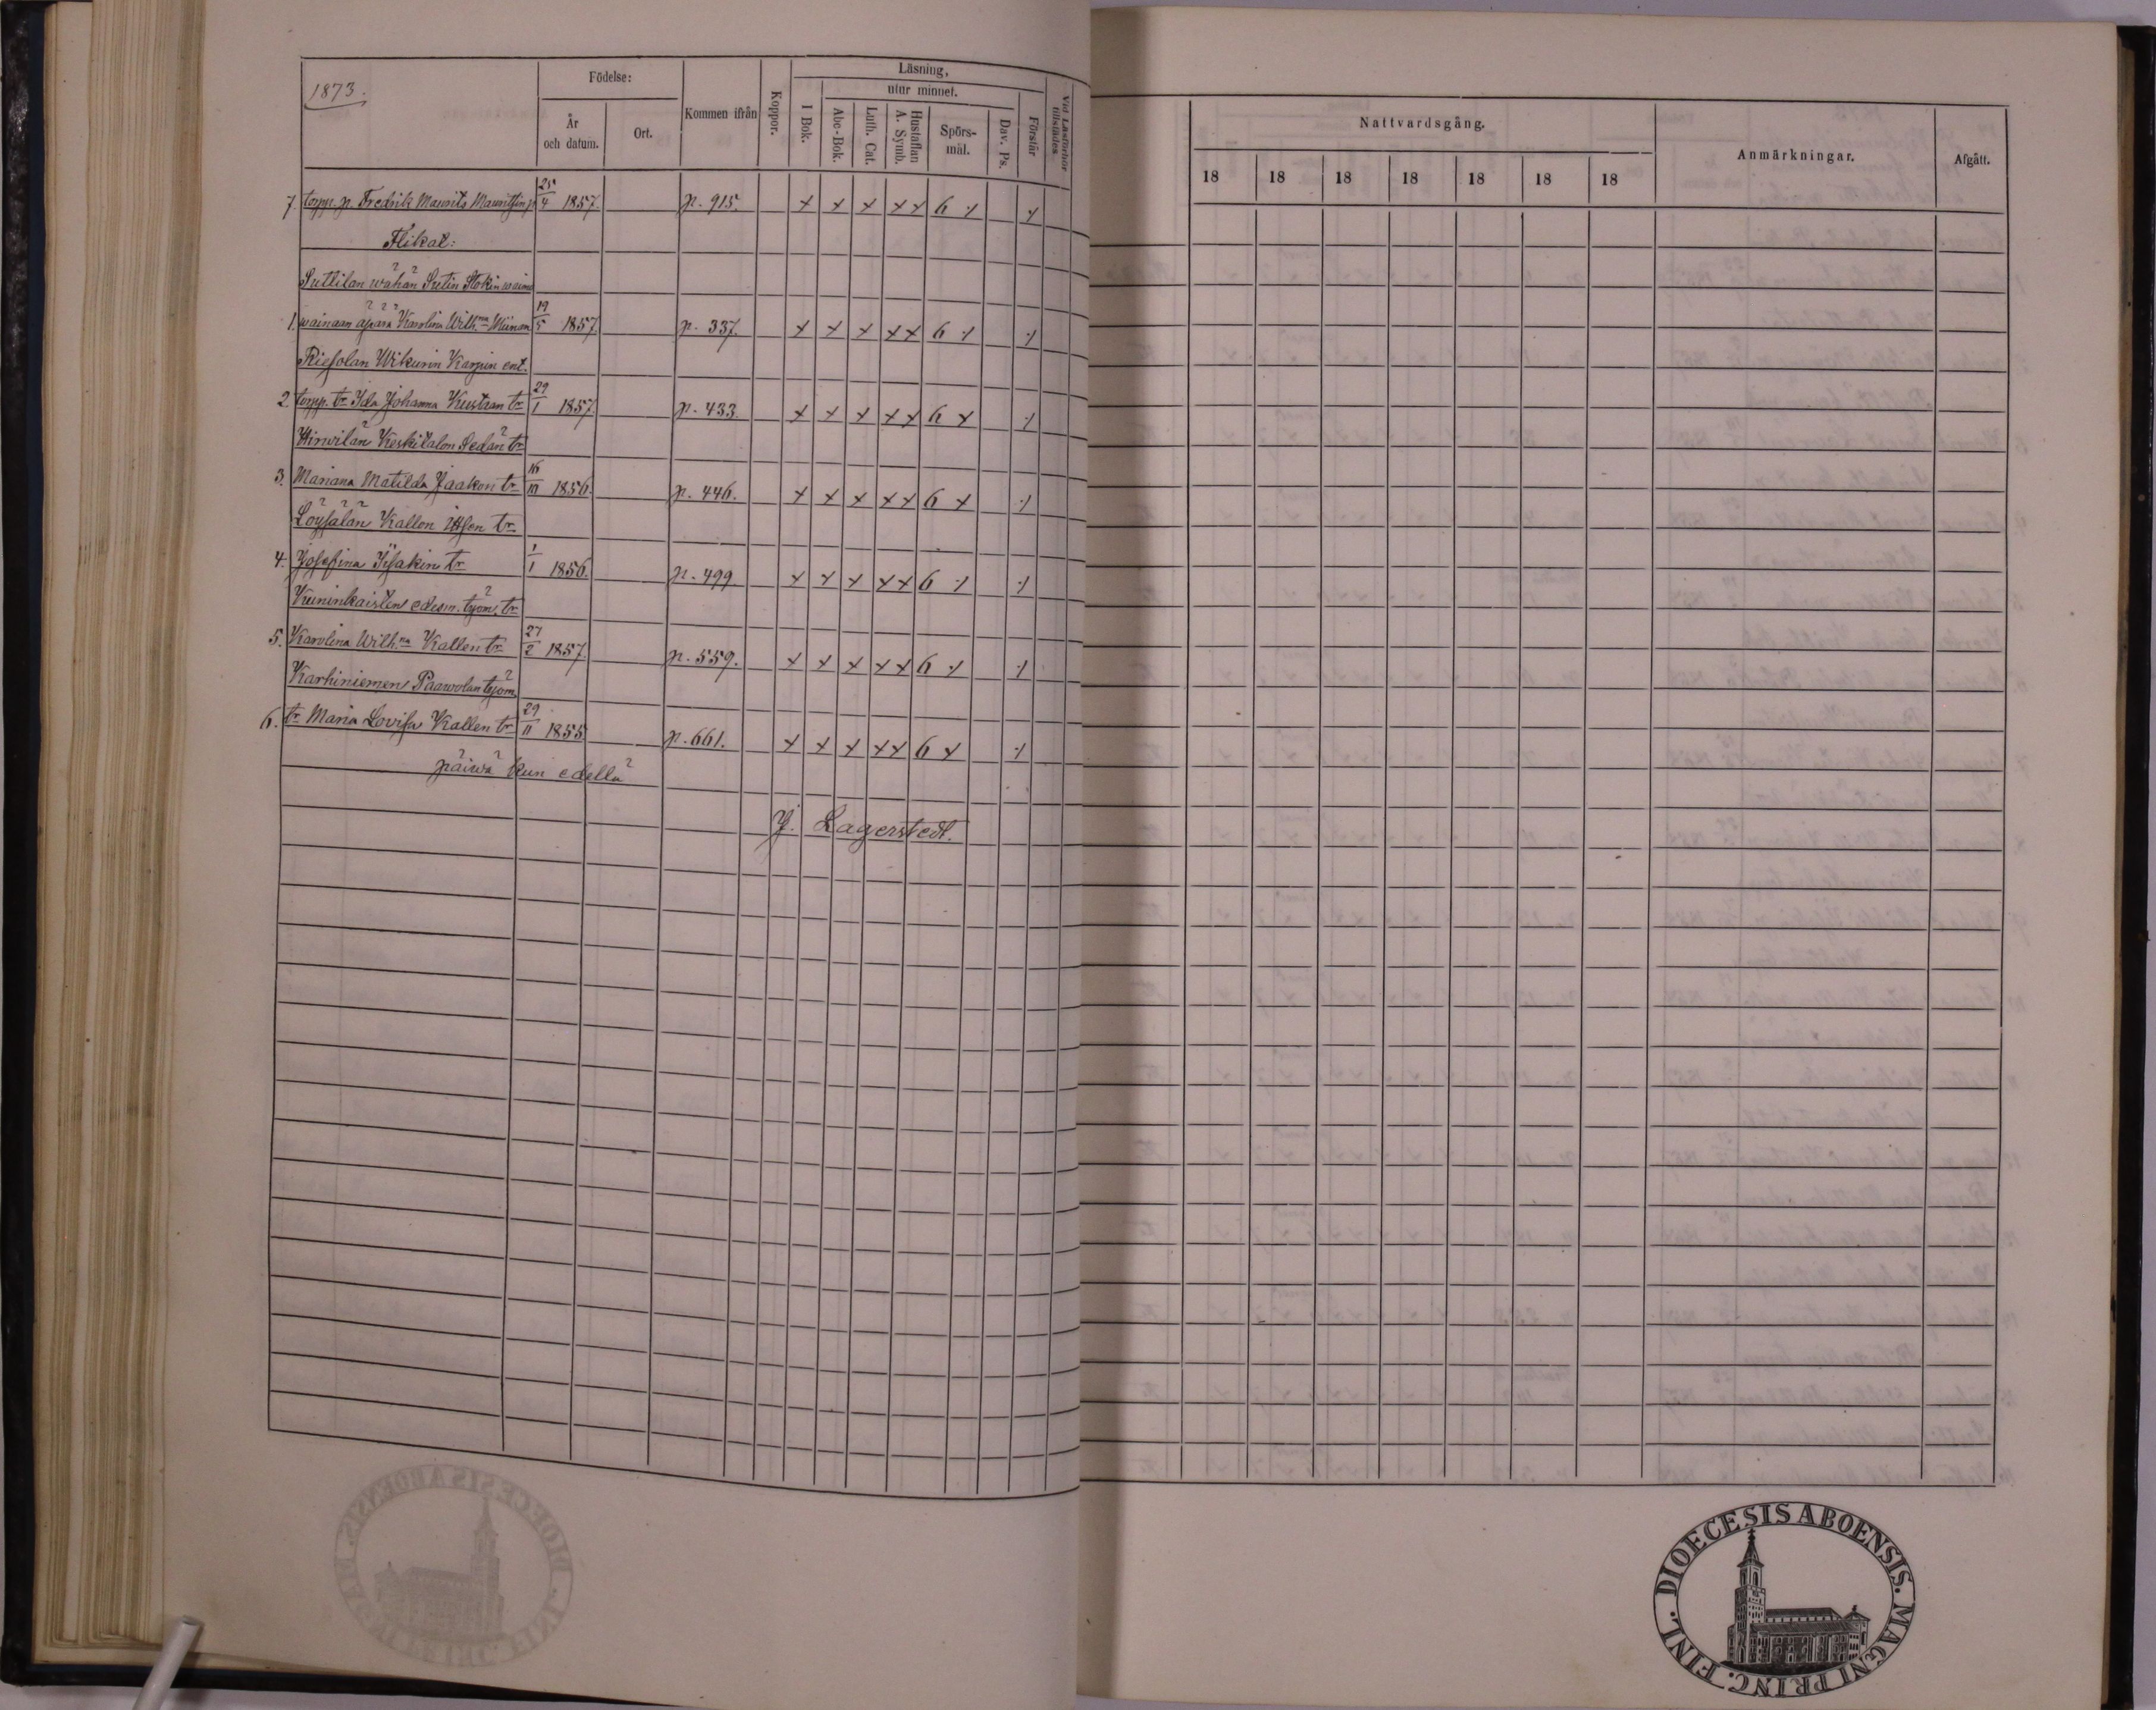 1873.
Födelse:
År
och datum.
Ort.
Kommen ifrån
Koppor.
Läsning,
utur minnet.
I Bok.
Abc-Bok.
Luth. Cat.
Hustaflan
A. Symb.
Spörs-
mål.
Dav. Ps.
Förstår
Vid Läsförhör
tillstädes
Nattvardsgång.
18 18 18 18 18 18 18
Anmärkningar.
Afgått.
7. torpp. p. Fredrik Maurits Mauritsin p. 25/4 1857. p. 915. x x x x x 6 ⁒ ⁒
Flikat:
Suttilan wähän Sutin
1. wainaan Karolina Wilh.na 19/5 1857. p. 337. x x x x x 6 ⁒ ⁒
Wikurin Karpin ent.
2. torpp. tr Ida Johanna Kustaan tr 29/1 1857. p. 433. x x x x x 6 x ⁒
Hirwilän Keskitalon Sedän tr
3. Mariana Matilda Jaakon tr 16/10 1856. p. 446. x x x x x 6 x ⁒
Kallon tr
4. Josefina Isakin tr 1/1 1856. p. 499. x x x x x 6 ⁒ ⁒
Kuninkaisten edesm. työm. tr
5. Karolina Wilh.na Kallen tr 27/2 1857. p. 559. x x x x x 6 ⁒ ⁒
Karhiniemen Paawolan työm.
6. tr Maria Lovisa Kallen tr 29/11 1855. p. 661. x x x x x 6 x ⁒
päiwä kun edellä
J. Lagerstedt.
DIOECESIS ABOENSIS. MAGNI PRINC. FINL.